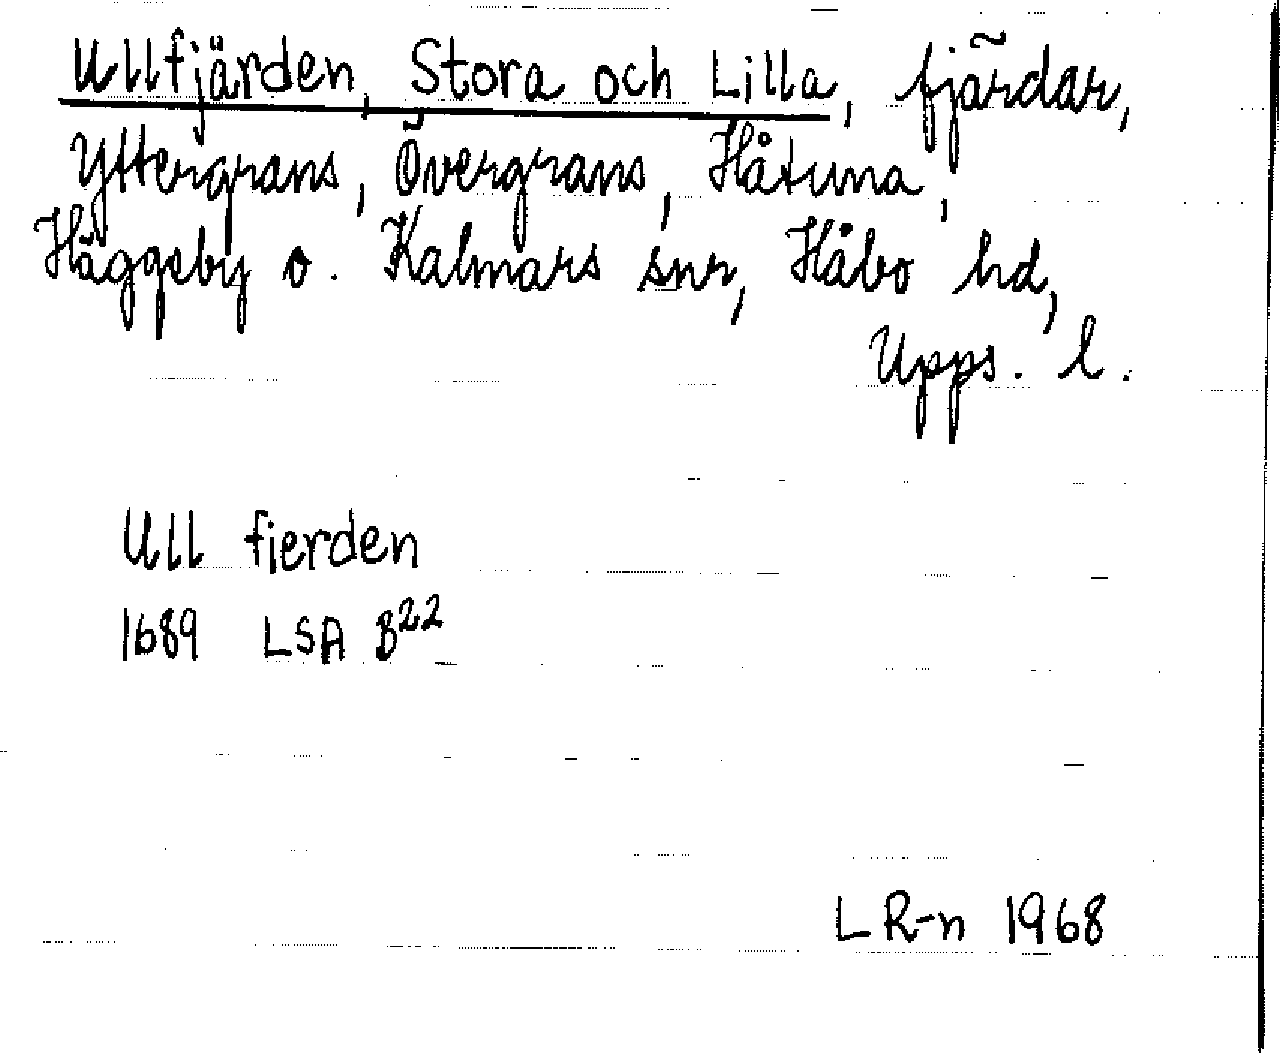 Ullfjärden, Stora och Lilla, fjärdar,
Yttergrans, Övergrans, Håtuna,
Häggeby o. Kalmars snr, Håbo hd,
Upps. l.
Ull fierden
1689 LSA B22
LR-n 1968